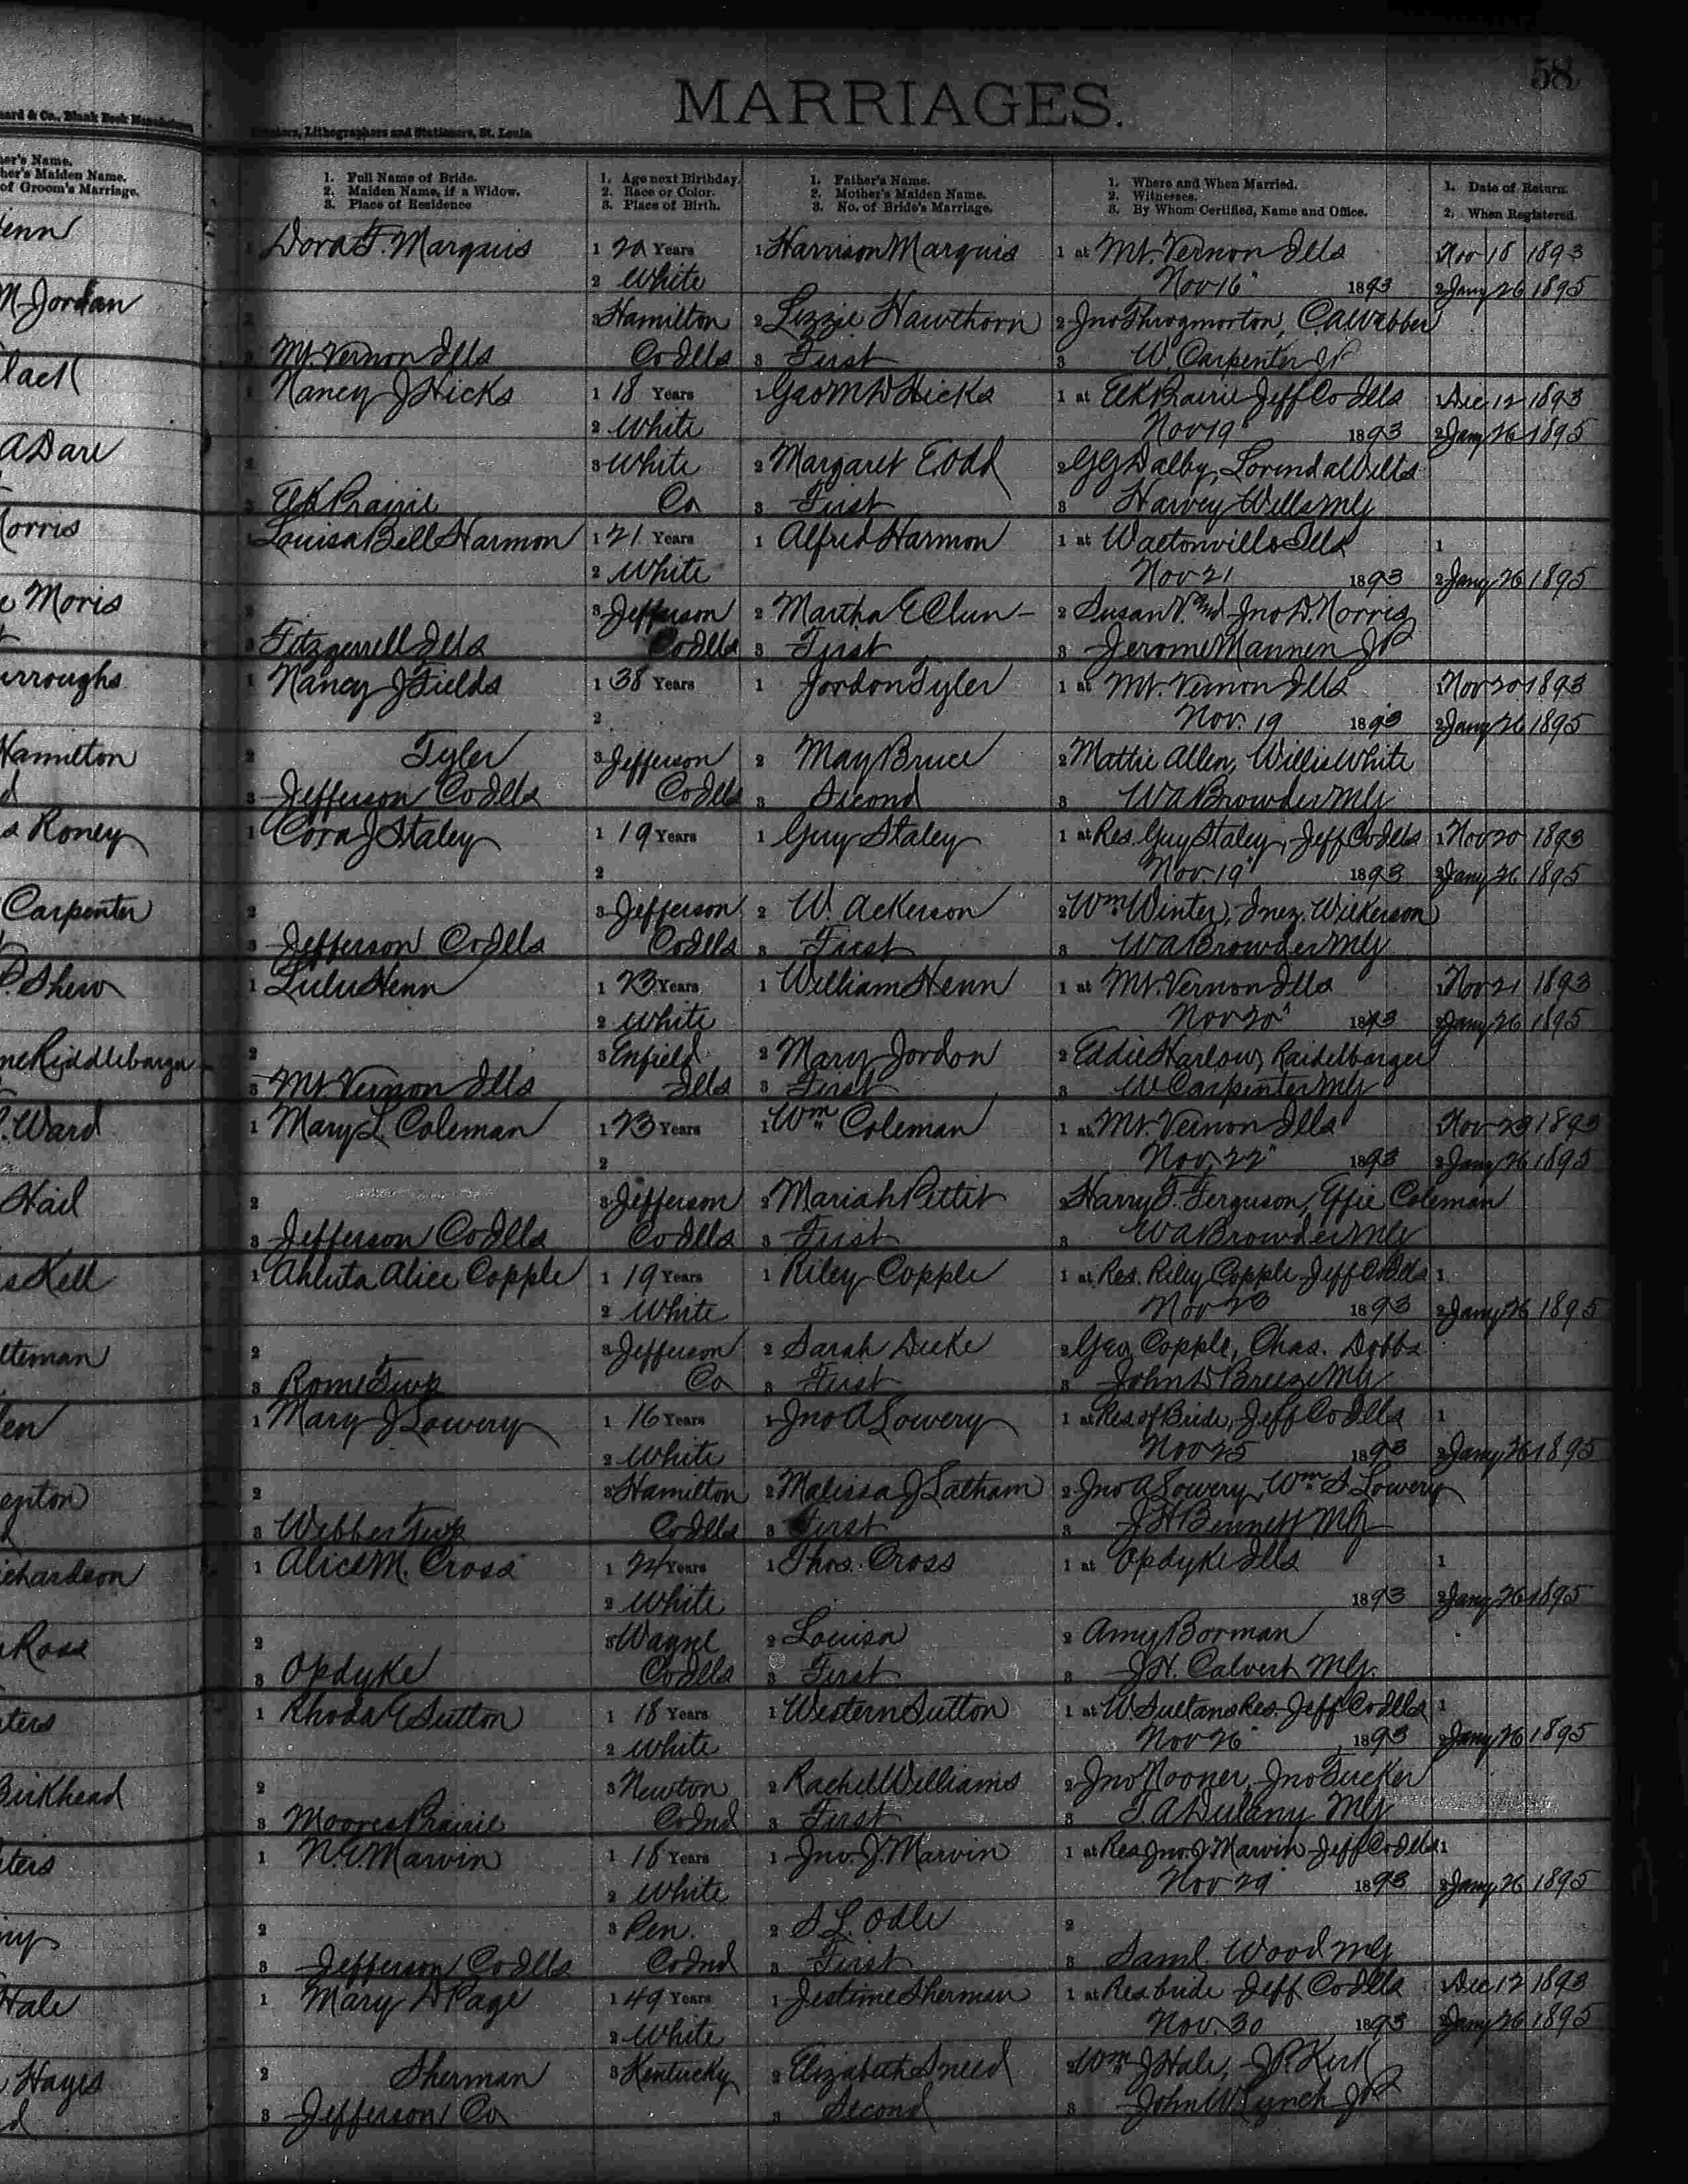 58
MARRIAGES.
ard & Co., Blank Book Manufacturers
Printers, Lithographers and Stationers, St. Louis
her's Name.
her's Maiden Name.
of Groom's Marriage.
1. Full Name of Bride.
2. Maiden Name, if a Widow.
3. Place of Residence
1. Age next Birthday.
2. Race or Color.
3. Place of Birth.
1. Father's Name.
2. Mother's Maiden Name.
3. No. of Bride's Marriage.
1. Where and When Married.
2. Witnesses.
3. By Whom Certified, Name and Office.
1. Date of Return.
2. When Registered.
enn
1 Dora F. Marquis 1 Years 1 Harrison Marquis 1 at Mt. Vernon Ills Nov 18 1893
2 White Nov 16" 1893 2 Jany 26 1895
M Jordan
2 3 Hamilton 2 Lizzie Hawthorn 2 Jno Throgmorton, C.A. Webber
3 Mt. Vernon Ills Co Ills 3 First 3 W. Carpenter JP
lack
1 Nancy J Hicks 1 18 Years 1 Geo M D Hicks 1 at Elk Prairie Jeff Co Ills 1 Dec 12 1893
2 White Nov 19" 1893 2 Jany 26 1895
A Dare
2 3 White 2 Margaret E Odd 2 G G Dalby, Lorinda Wells
3 Elk Prairie Co 3 First 3 Harvey Wells Mg
orris
1 Louisa Bell Harmon 1 21 Years 1 Alfred Harmon 1 at Waltonville Ills 1
2 White Nov 21 1893 2 Jany 26 1895
e Moris
2 3 Jefferson 2 Martha E Clun- 2 Susan V. and Jno D. Norris
3 Fitzgerrell Ills Co Ills 3 First 3 Jerome Mannen JP
urroughs
1 Nancy J Fields 1 38 Years 1 Jordon Tyler 1 at Mt. Vernon Ills 1 Nov 20 1893
2 Nov. 19 1893 2 Jany 26 1895
Hamilton
2 Tyler 3 Jefferson 2 May Bruce 2 Mattie Allen, Willis White
d
3 Jefferson Co Ills Co Ills 3 Second 3 W A Browder Mg
s Roney
1 Cora J Staley 1 19 Years 1 Guy Staley 1 at Res. Guy Staley, Jeff Co Ills 1 Nov 20 1893
2 Nov. 19" 1893 2 Jany 26 1895
Carpenter
2 3 Jefferson 2 W. Ackerson 2 Wm Winter, Inez. Wilkerson
3 Jefferson Co Ills Co Ills 3 First 3 W A Browder Mg
P. Shew
1 Lulu Henn 1 23 Years 1 William Henn 1 at Mt. Vernon Ills 1 Nov 21 1893
2 White Nov 20" 1893 2 Jany 26 1895
me Riddlebarger
2 3 Enfield 2 Mary Jordon 2 Eddie Harlow, Raidelbarger
3 Mt. Vernon Ills Ills 3 First 3 W Carpenter Mg
Ward
1 Mary L. Coleman 1 23 Years 1 Wm Coleman 1 at Mt. Vernon Ills Nov 23 1893
2 Nov. 22" 1893 2 Jany 26 1895
Hail
2 3 Jefferson 2 Mariah Pettit 2 Harry F. Ferguson, Effie Coleman
3 Jefferson Co Ills Co Ills 3 First 3 W A Browder Mg
s Kell
1 Alice Copple 1 19 Years 1 Riley Copple 1 at Res. Riley Copple Jeff Co Ills 1
2 White Nov 23 1893 2 Jany 26 1895
lteman
2 3 Jefferson 2 Sarah 2 Geo Copple, Chas. Dobbs
3 Rome Twp Co 3 First 3 John D Breeze Mg
len
1 Mary J Lowery 1 16 Years 1 Jno A Lowery 1 at Res of Bride, Jeff Co Ills 1
2 White Nov 25 1893 2 Jany 26 1895
enton
2 3 Hamilton 2 Malissa J Latham 2 Jno A Lowery, Wm S. Lowery
3 Webber Twp Co Ills 3 First 3 J H Bennett Mg
ichardson
1 Alice M. Cross 1 24 Years 1 Thos. Cross 1 at Opdyke Ills 1
2 White 1893 2 Jany 26 1895
Ross
2 3 Wayne 2 Louisa 2 Amy Borman
3 Opdyke Co Ills 3 First 3 J.H. Calvert Mg.
ters
1 Rhoda E Sutton 1 18 Years 1 Western Sutton 1 at W. Suttons Res. Jeff Co Ills 1
2 White Nov 26" 1893 2 Jany 26 1895
Birkhead
2 3 Newton 2 Rachel Williams 2 Jno Nooner, Jno Tucker
3 Moores Prairie Co Ind 3 First 3 T. A Dulany Mg
ters
1 N.E. Marvin 1 18 Years 1 Jno. J. Marvin 1 at Res Jno. J Marvin Jeff Co Ills 1
2 White Nov 29" 1893 2 Jany 26 1895
2 3 Pen. 2 S L. Odle 2
3 Jefferson Co Ills Co Ind 3 First 3 Saml. Wood Mg
Hale
1 Mary D Page 1 49 Years 1 Sherman 1 at Res bride Jeff Co Ills Dec 12 1893
2 White Nov. 30 1893 2 Jany 26 1895
Hayes
2 Sherman 3 Kentucky 2 Elizabeth Sneed 2 Wm J Hale, J P. Kirk
d
3 Jefferson Co 3 Second 3 John W Lynch JP